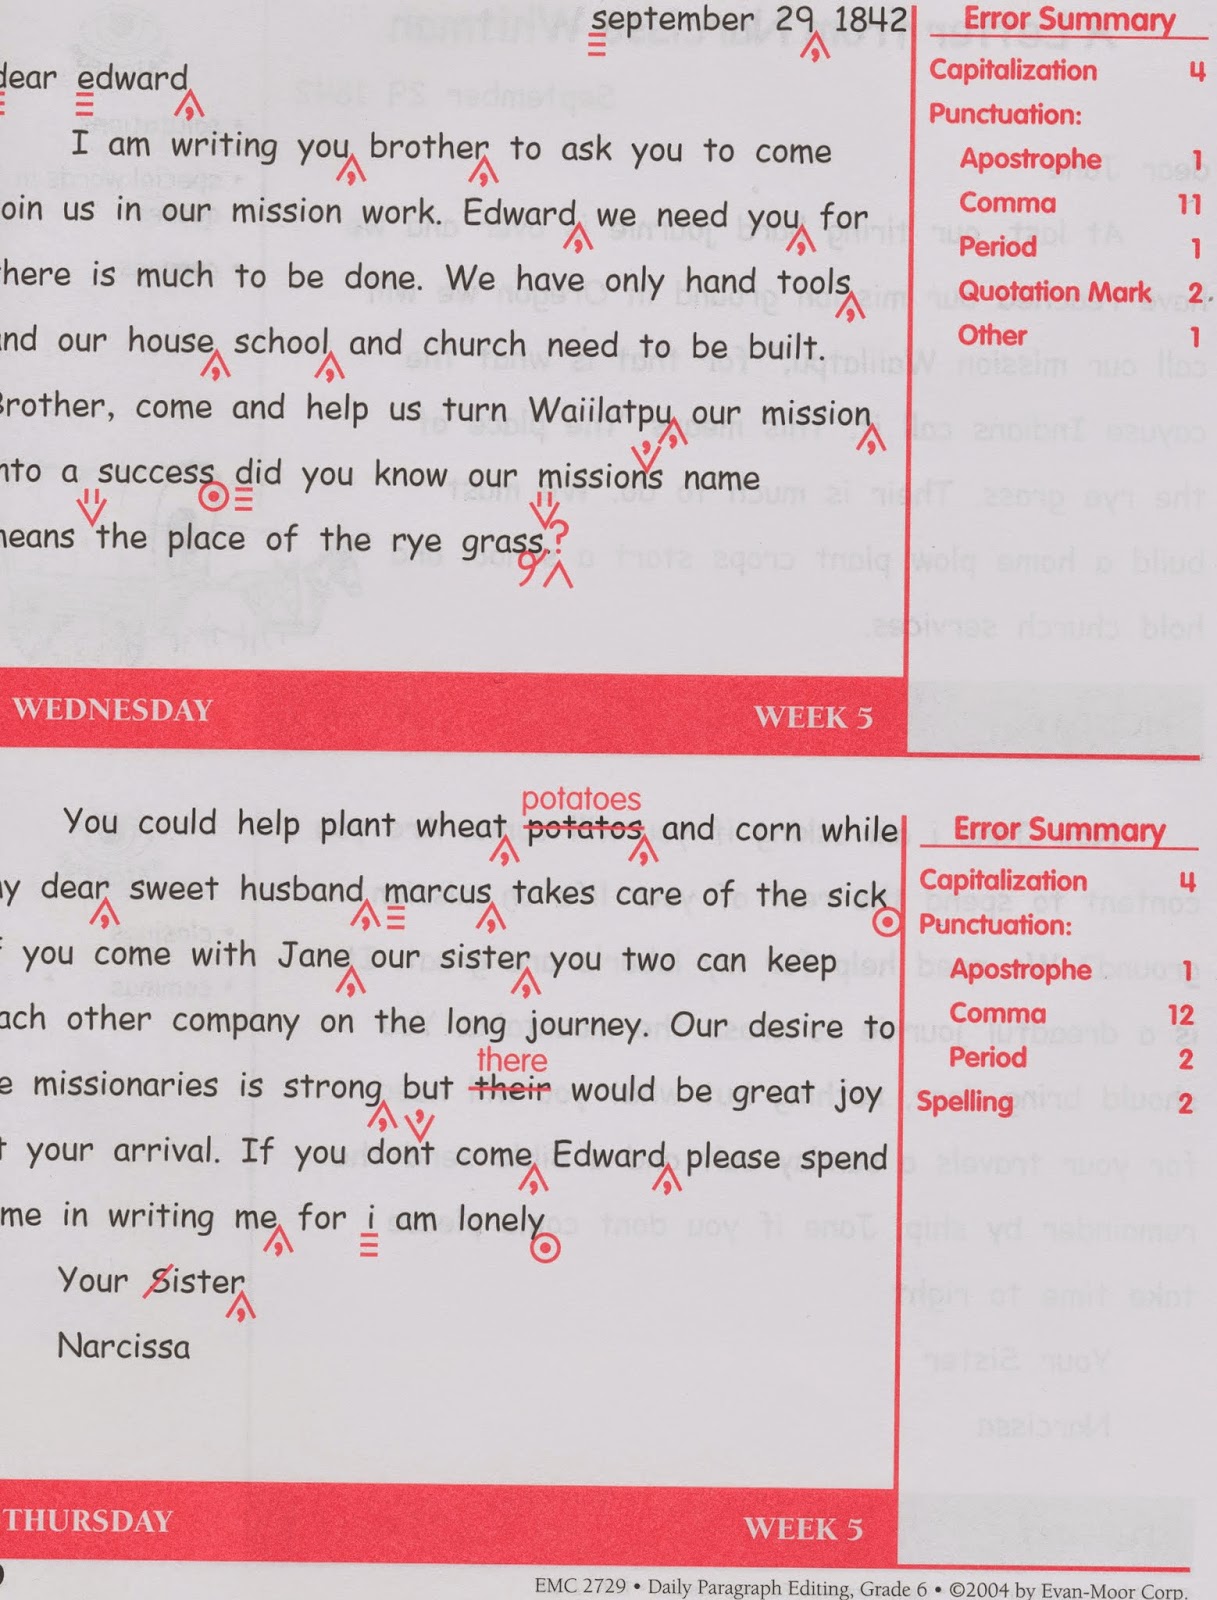 september 29, 1842
dear edward,
I am writing you, brother, to ask you to come
oin us in our mission work. Edward, we need you, for
here is much to be done. We have only hand tools,
nd our house, school, and church need to be built.
Brother, come and help us turn Waiilatpu, our mission,
nto a success. did you know our mission's name
eans "the place of the rye grass."?
WEDNESDAY WEEK 5
Error Summary
Capitalization 4
Punctuation:
Apostrophe 1
Comma 11
Period 1
Quotation Mark 2
Other 1
potatoes
You could help plant wheat, potatos, and corn while
y dear, sweet husband, marcus, takes care of the sick.
f you come with Jane, our sister, you two can keep
ach other company on the long journey. Our desire to
there
e missionaries is strong, but their would be great joy
t your arrival. If you don't come, Edward, please spend
me in writing me, for i am lonely.
Your Sister,
Narcissa
THURSDAY WEEK 5
Error Summary
Capitalization 4
Punctuation:
Apostrophe 1
Comma 12
Period 2
Spelling 2
EMC 2729 • Daily Paragraph Editing, Grade 6 • ©2004 by Evan-Moor Corp.